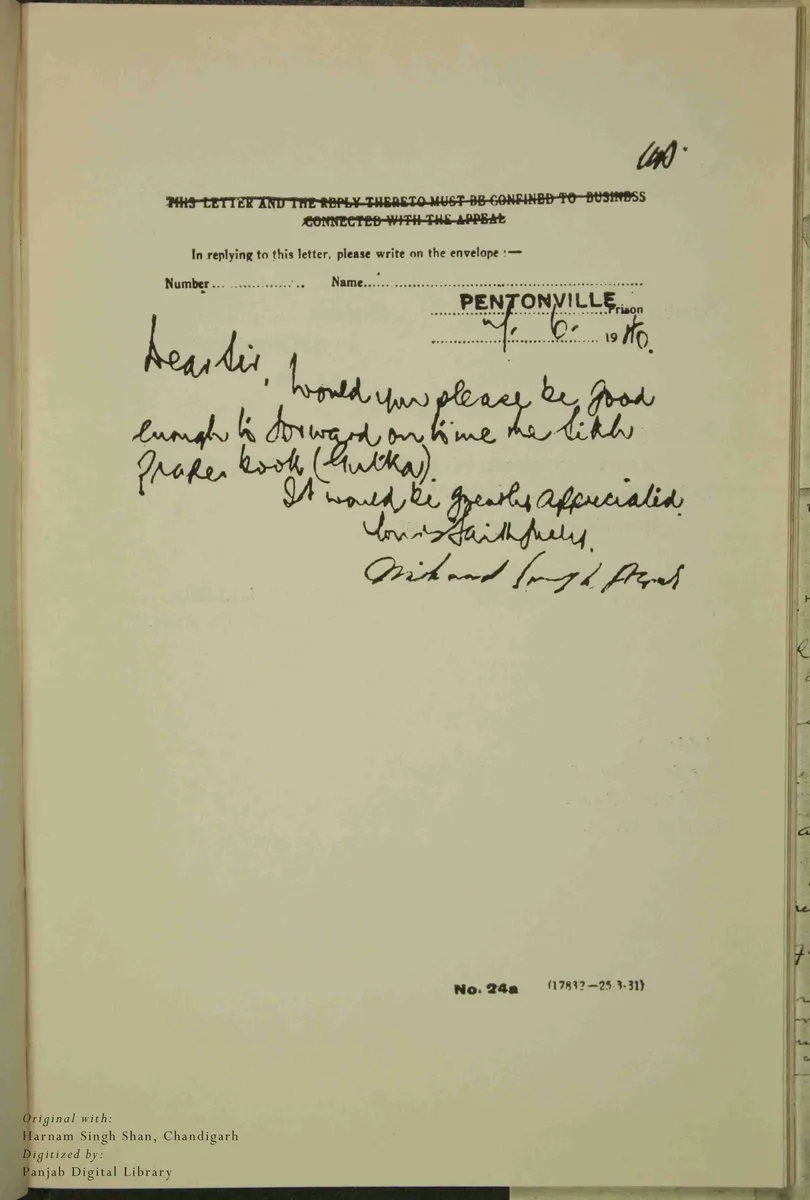 THIS LETTER AND THE REPLY THERETO MUST BE CONFINED TO BUSINESS
CONNECTED WITH THE APPEAL
In replying to this letter, please write on the envelope :—
Number.................. Name..................
PENTONVILLE Prison
7. 6. 1940.
Dear Sir,
Would you please be good
enough to forward on to me the Sikh
prayer book (Gutka).
It would be greatly appreciated.
Yours faithfully,
Singh Azad
No. 24a (17832—25-3-31)
Original with:
Harnam Singh Shan, Chandigarh
Digitized by:
Panjab Digital Library